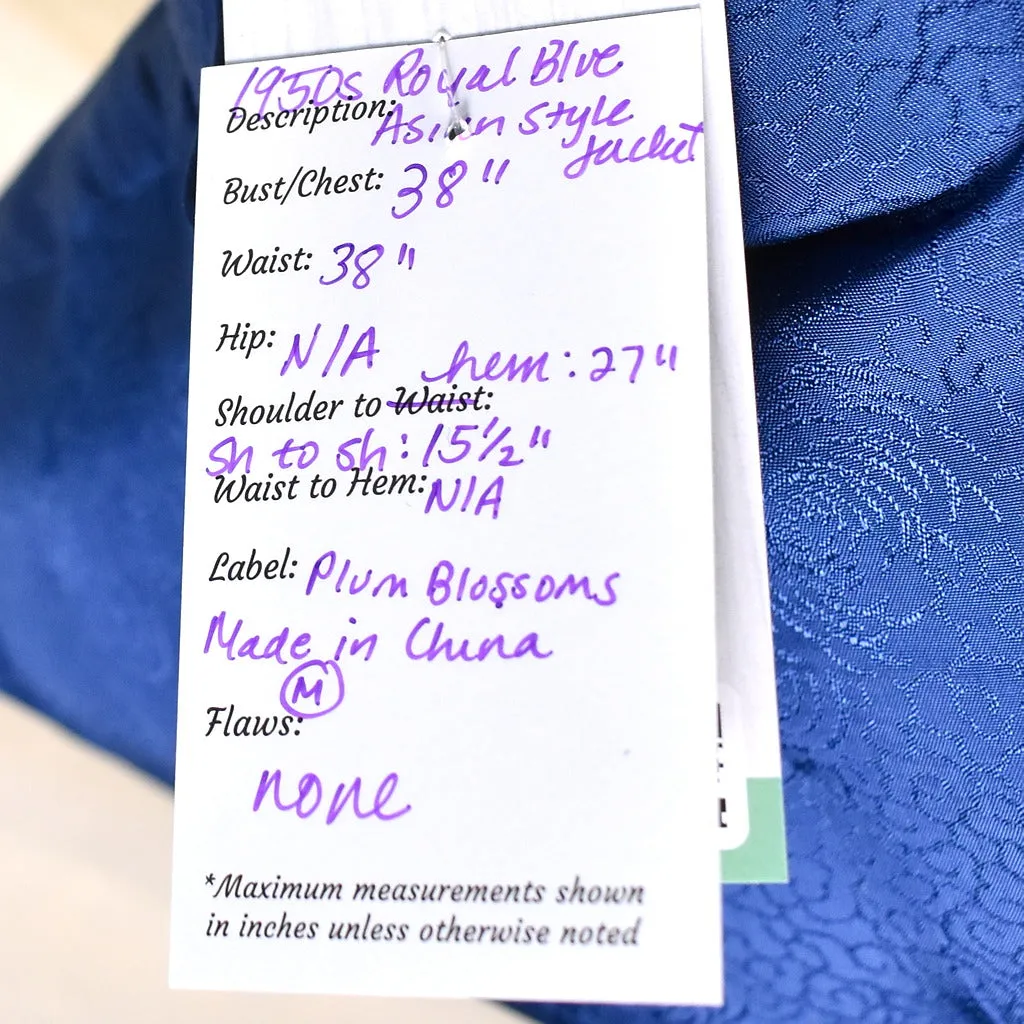 1950s Royal Blue
Description: Asian Style
Jacket
Bust/Chest: 38"
Waist: 38"
Hip: N/A
hem: 27"
Shoulder to Waist:
Sh to sh: 15½"
Waist to Hem: N/A
Label: Plum Blossoms
Made in China
M
Flaws:
none
*Maximum measurements shown
in inches unless otherwise noted